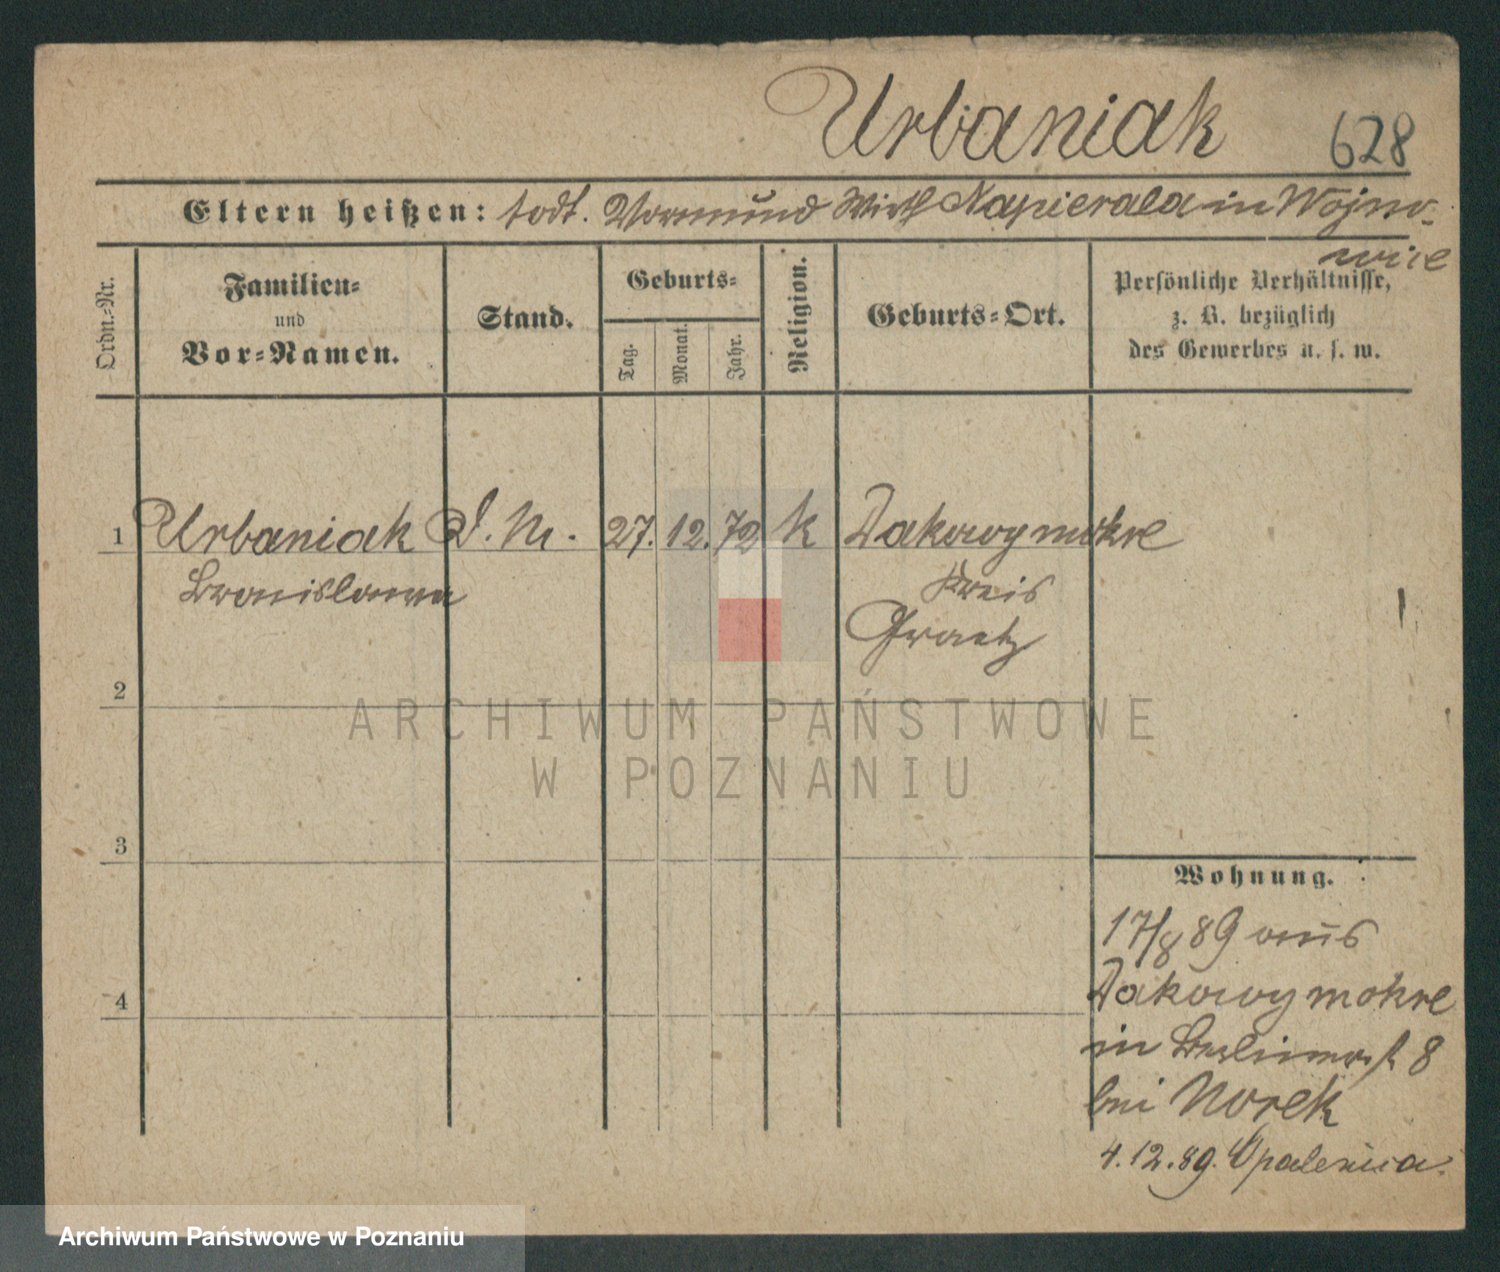 Urbaniak 628
Eltern heißen: todt. Vormund Wirth Napierala in Wojno-
wice
Ordn.-Nr.
Familien-
und
Vor-Namen.
Stand.
Geburts-
Tag.
Monat.
Jahr.
Religion.
Geburts-Ort.
Persönliche Verhältnisse,
z. B. bezüglich
des Gewerbes u. s. w.
1 Urbaniak D. M. 27. 12. 72 k Dakowy mokre
Bronislawa Kreis
Graetz
2
3
4
ARCHIWUM PAŃSTWOWE
W POZNANIU
Wohnung.
17/8 89 aus
Dakowy mokre
in Berlinerst 8
bei Norek
4.12.89. Opalenica.
Archiwum Państwowe w Poznaniu